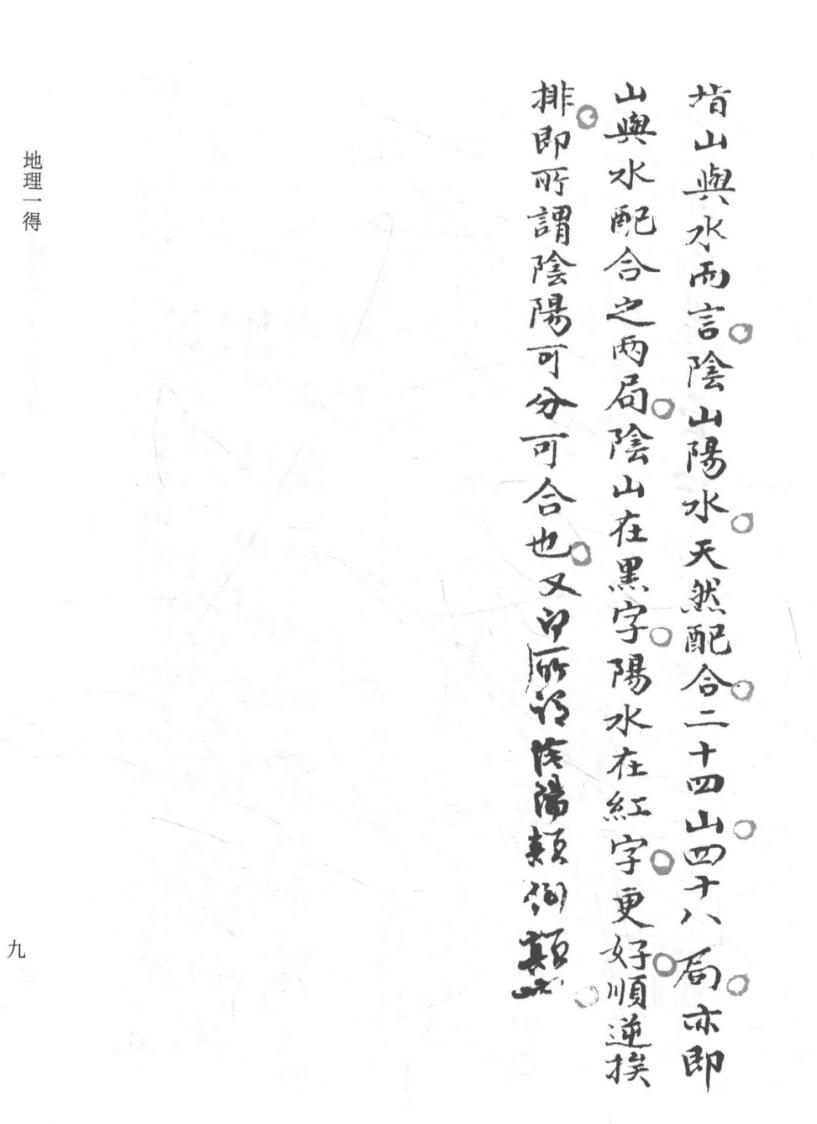 指山與水而言○陰山陽水○天然配合○二十四山○四十八局○亦即
山與水配合之兩局○陰山在黑字○陽水在紅字○更好○順逆挨
排○即所謂陰陽可分可合也○又即所謂陰陽顛倒顛也○
地理一得
九